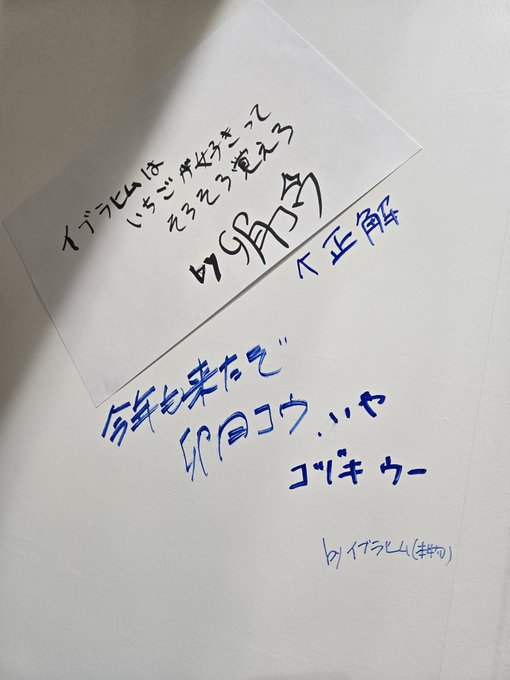 イブラヒムは
いちごが好きって
そろそろ覚えろ
by 卯月コウ
↖正解
今年も来たぞ
卯月コウ、、いや
コヅキ ウー
by イブラヒム(本物)